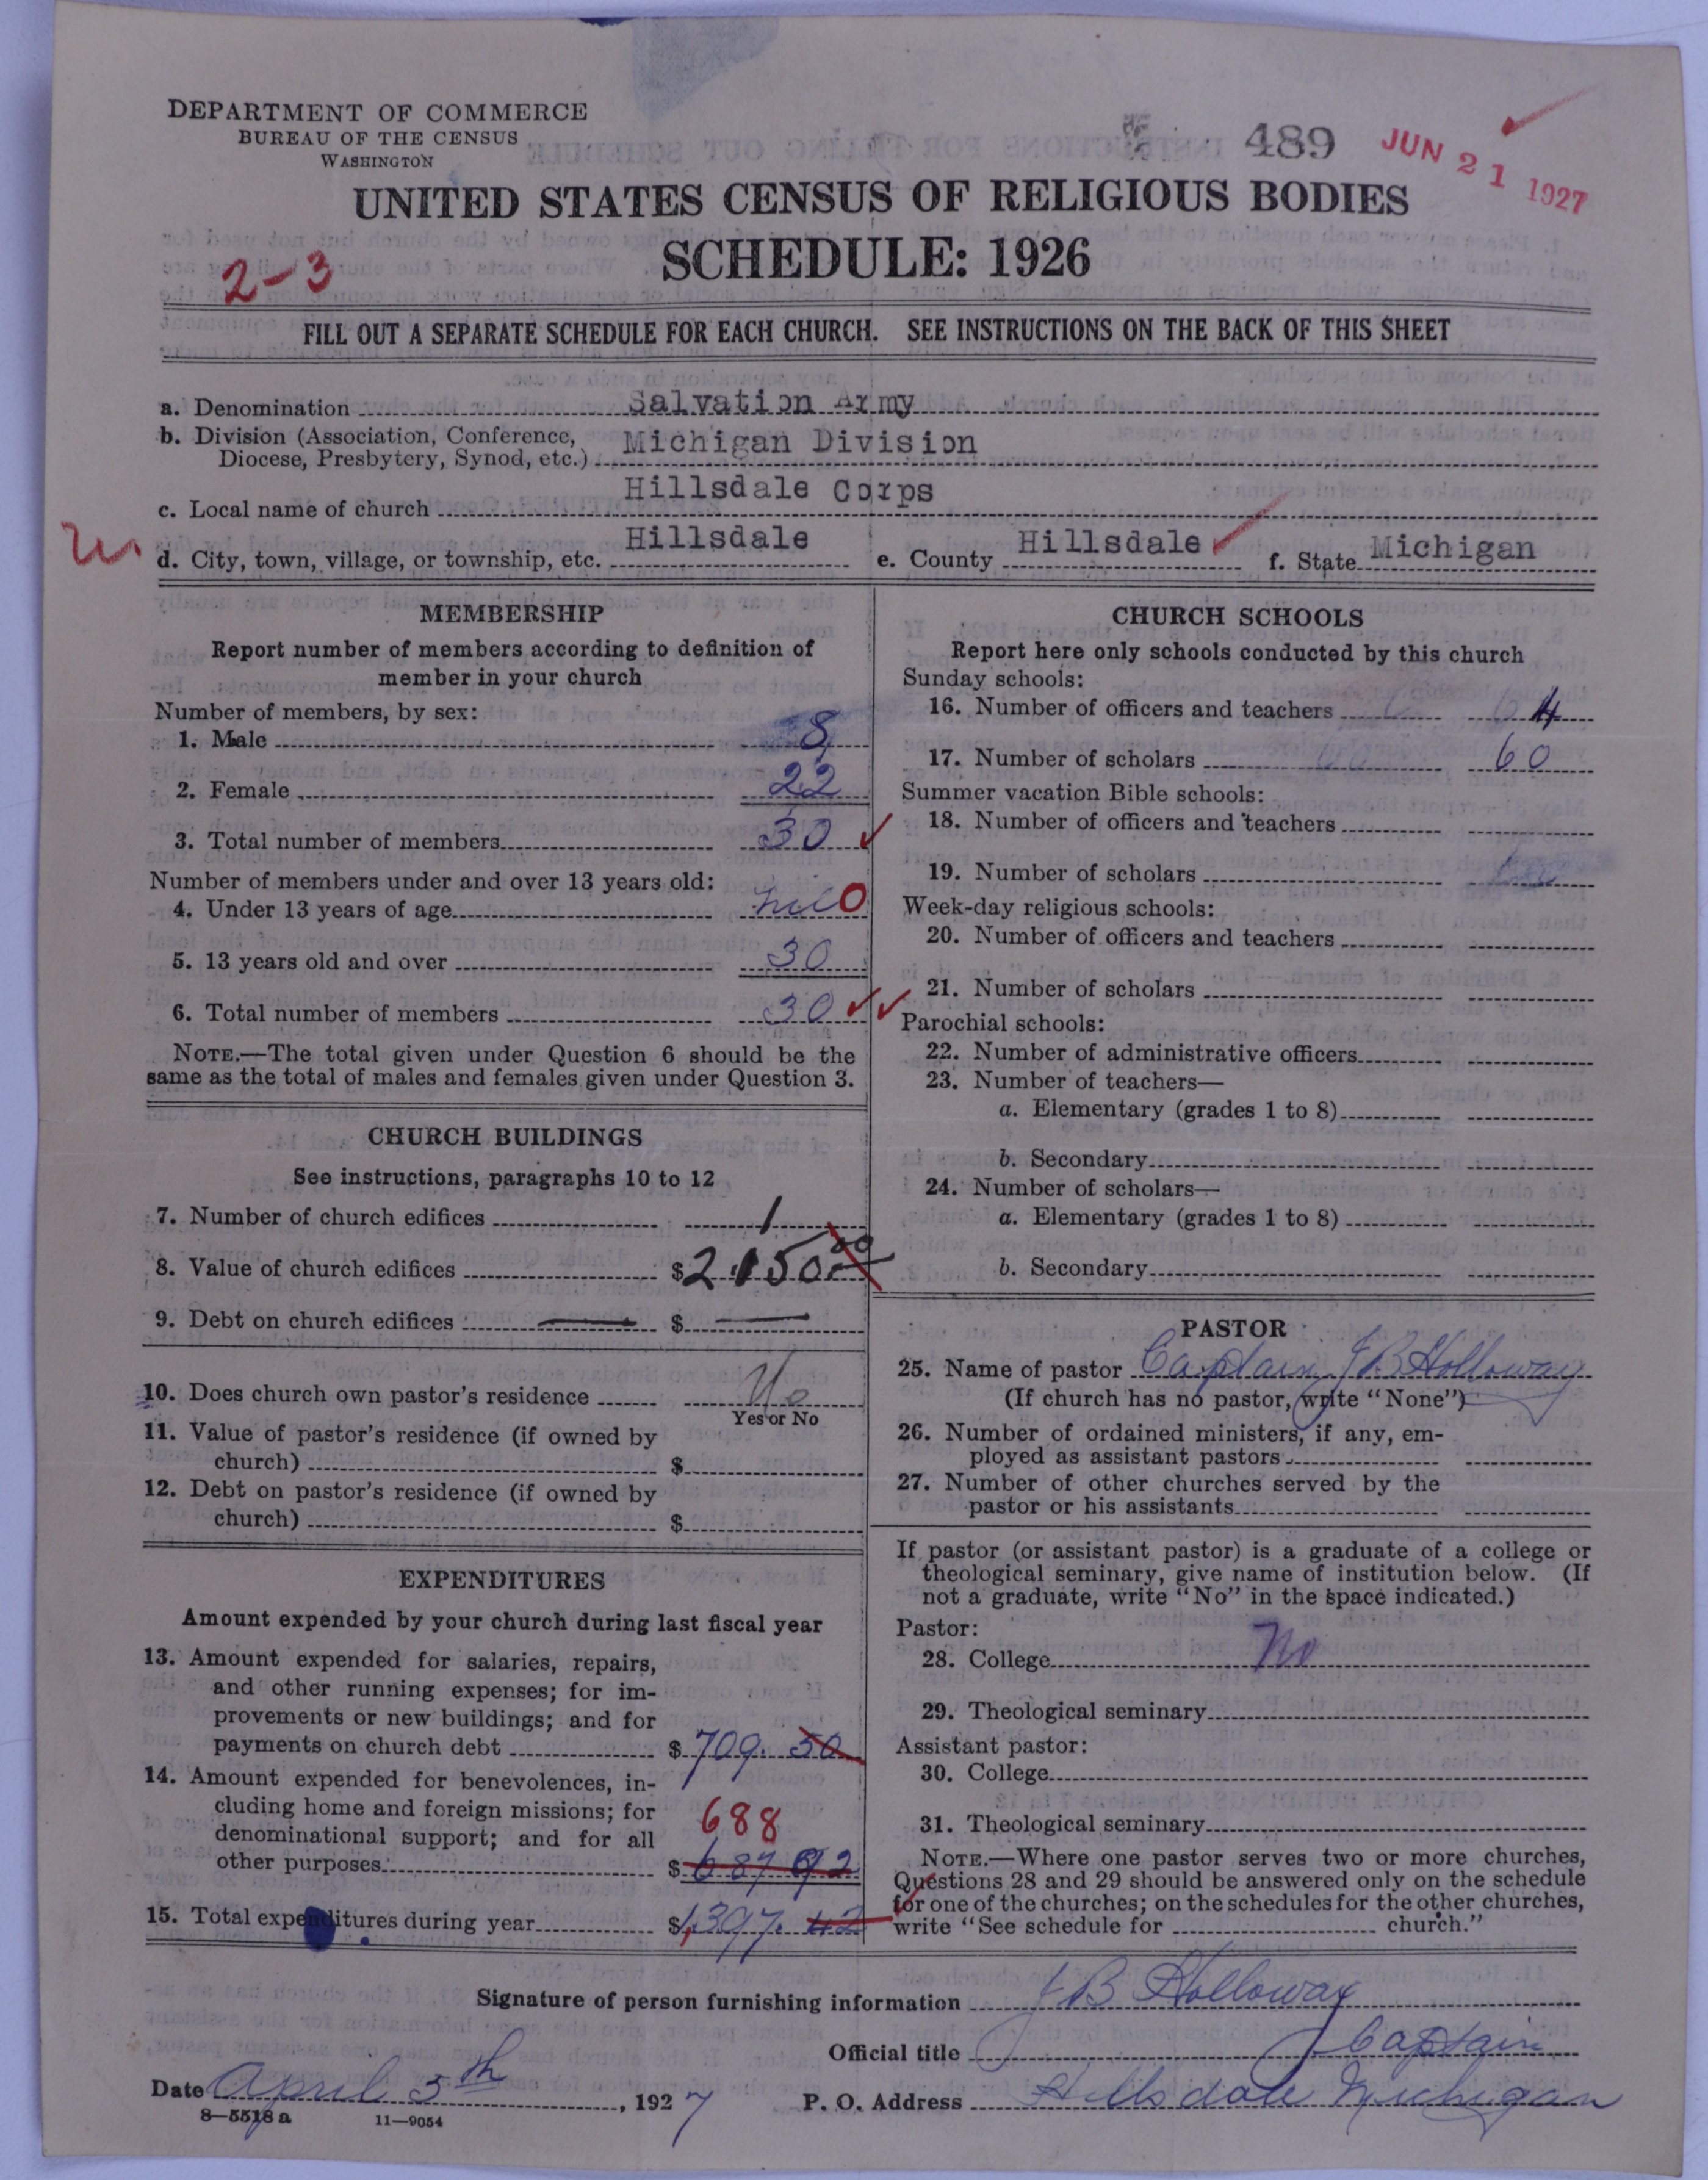 DEPARTMENT OF COMMERCE
BUREAU OF THE CENSUS
WASHINGTON
489
JUN 21 1927
UNITED STATES CENSUS OF RELIGIOUS BODIES
SCHEDULE: 1926
2-3
FILL OUT A SEPARATE SCHEDULE FOR EACH CHURCH. SEE INSTRUCTIONS ON THE BACK OF THIS SHEET
a. Denomination Salvation Army
b. Division (Association, Conference,
Diocese, Presbytery, Synod, etc.) Michigan Division
c. Local name of church Hillsdale Corps
d. City, town, village, or township, etc. Hillsdale e. County Hillsdale f. State Michigan
MEMBERSHIP
Report number of members according to definition of
member in your church
Number of members, by sex:
1. Male 8
2. Female 22
3. Total number of members 30
Number of members under and over 13 years old:
4. Under 13 years of age nil 0
5. 13 years old and over 30
6. Total number of members 30
NOTE.—The total given under Question 6 should be the
same as the total of males and females given under Question 3.
CHURCH BUILDINGS
See instructions, paragraphs 10 to 12
7. Number of church edifices 1
8. Value of church edifices $2150.00
9. Debt on church edifices — $ —
10. Does church own pastor's residence No
Yes or No
11. Value of pastor's residence (if owned by
church) $
12. Debt on pastor's residence (if owned by
church) $
EXPENDITURES
Amount expended by your church during last fiscal year
13. Amount expended for salaries, repairs,
and other running expenses; for im-
provements or new buildings; and for
payments on church debt $ 709. 50
14. Amount expended for benevolences, in-
cluding home and foreign missions; for
denominational support; and for all
688
other purposes $ 687 92
15. Total expenditures during year $1,397. 42
CHURCH SCHOOLS
Report here only schools conducted by this church
Sunday schools:
16. Number of officers and teachers 4
17. Number of scholars 60
Summer vacation Bible schools:
18. Number of officers and teachers
19. Number of scholars
Week-day religious schools:
20. Number of officers and teachers
21. Number of scholars
Parochial schools:
22. Number of administrative officers
23. Number of teachers—
a. Elementary (grades 1 to 8)
b. Secondary
24. Number of scholars—
a. Elementary (grades 1 to 8)
b. Secondary
PASTOR
25. Name of pastor Captain J B Holloway
(If church has no pastor, write "None")
26. Number of ordained ministers, if any, em-
ployed as assistant pastors
27. Number of other churches served by the
pastor or his assistants
If pastor (or assistant pastor) is a graduate of a college or
theological seminary, give name of institution below. (If
not a graduate, write "No" in the space indicated.)
Pastor:
28. College No
29. Theological seminary
Assistant pastor:
30. College
31. Theological seminary
NOTE.—Where one pastor serves two or more churches,
Questions 28 and 29 should be answered only on the schedule
for one of the churches; on the schedules for the other churches,
write "See schedule for church."
Signature of person furnishing information J B Holloway
Official title Captain
Date April 5th, 1927 P. O. Address Hillsdale Michigan
8—5518 a 11—9054